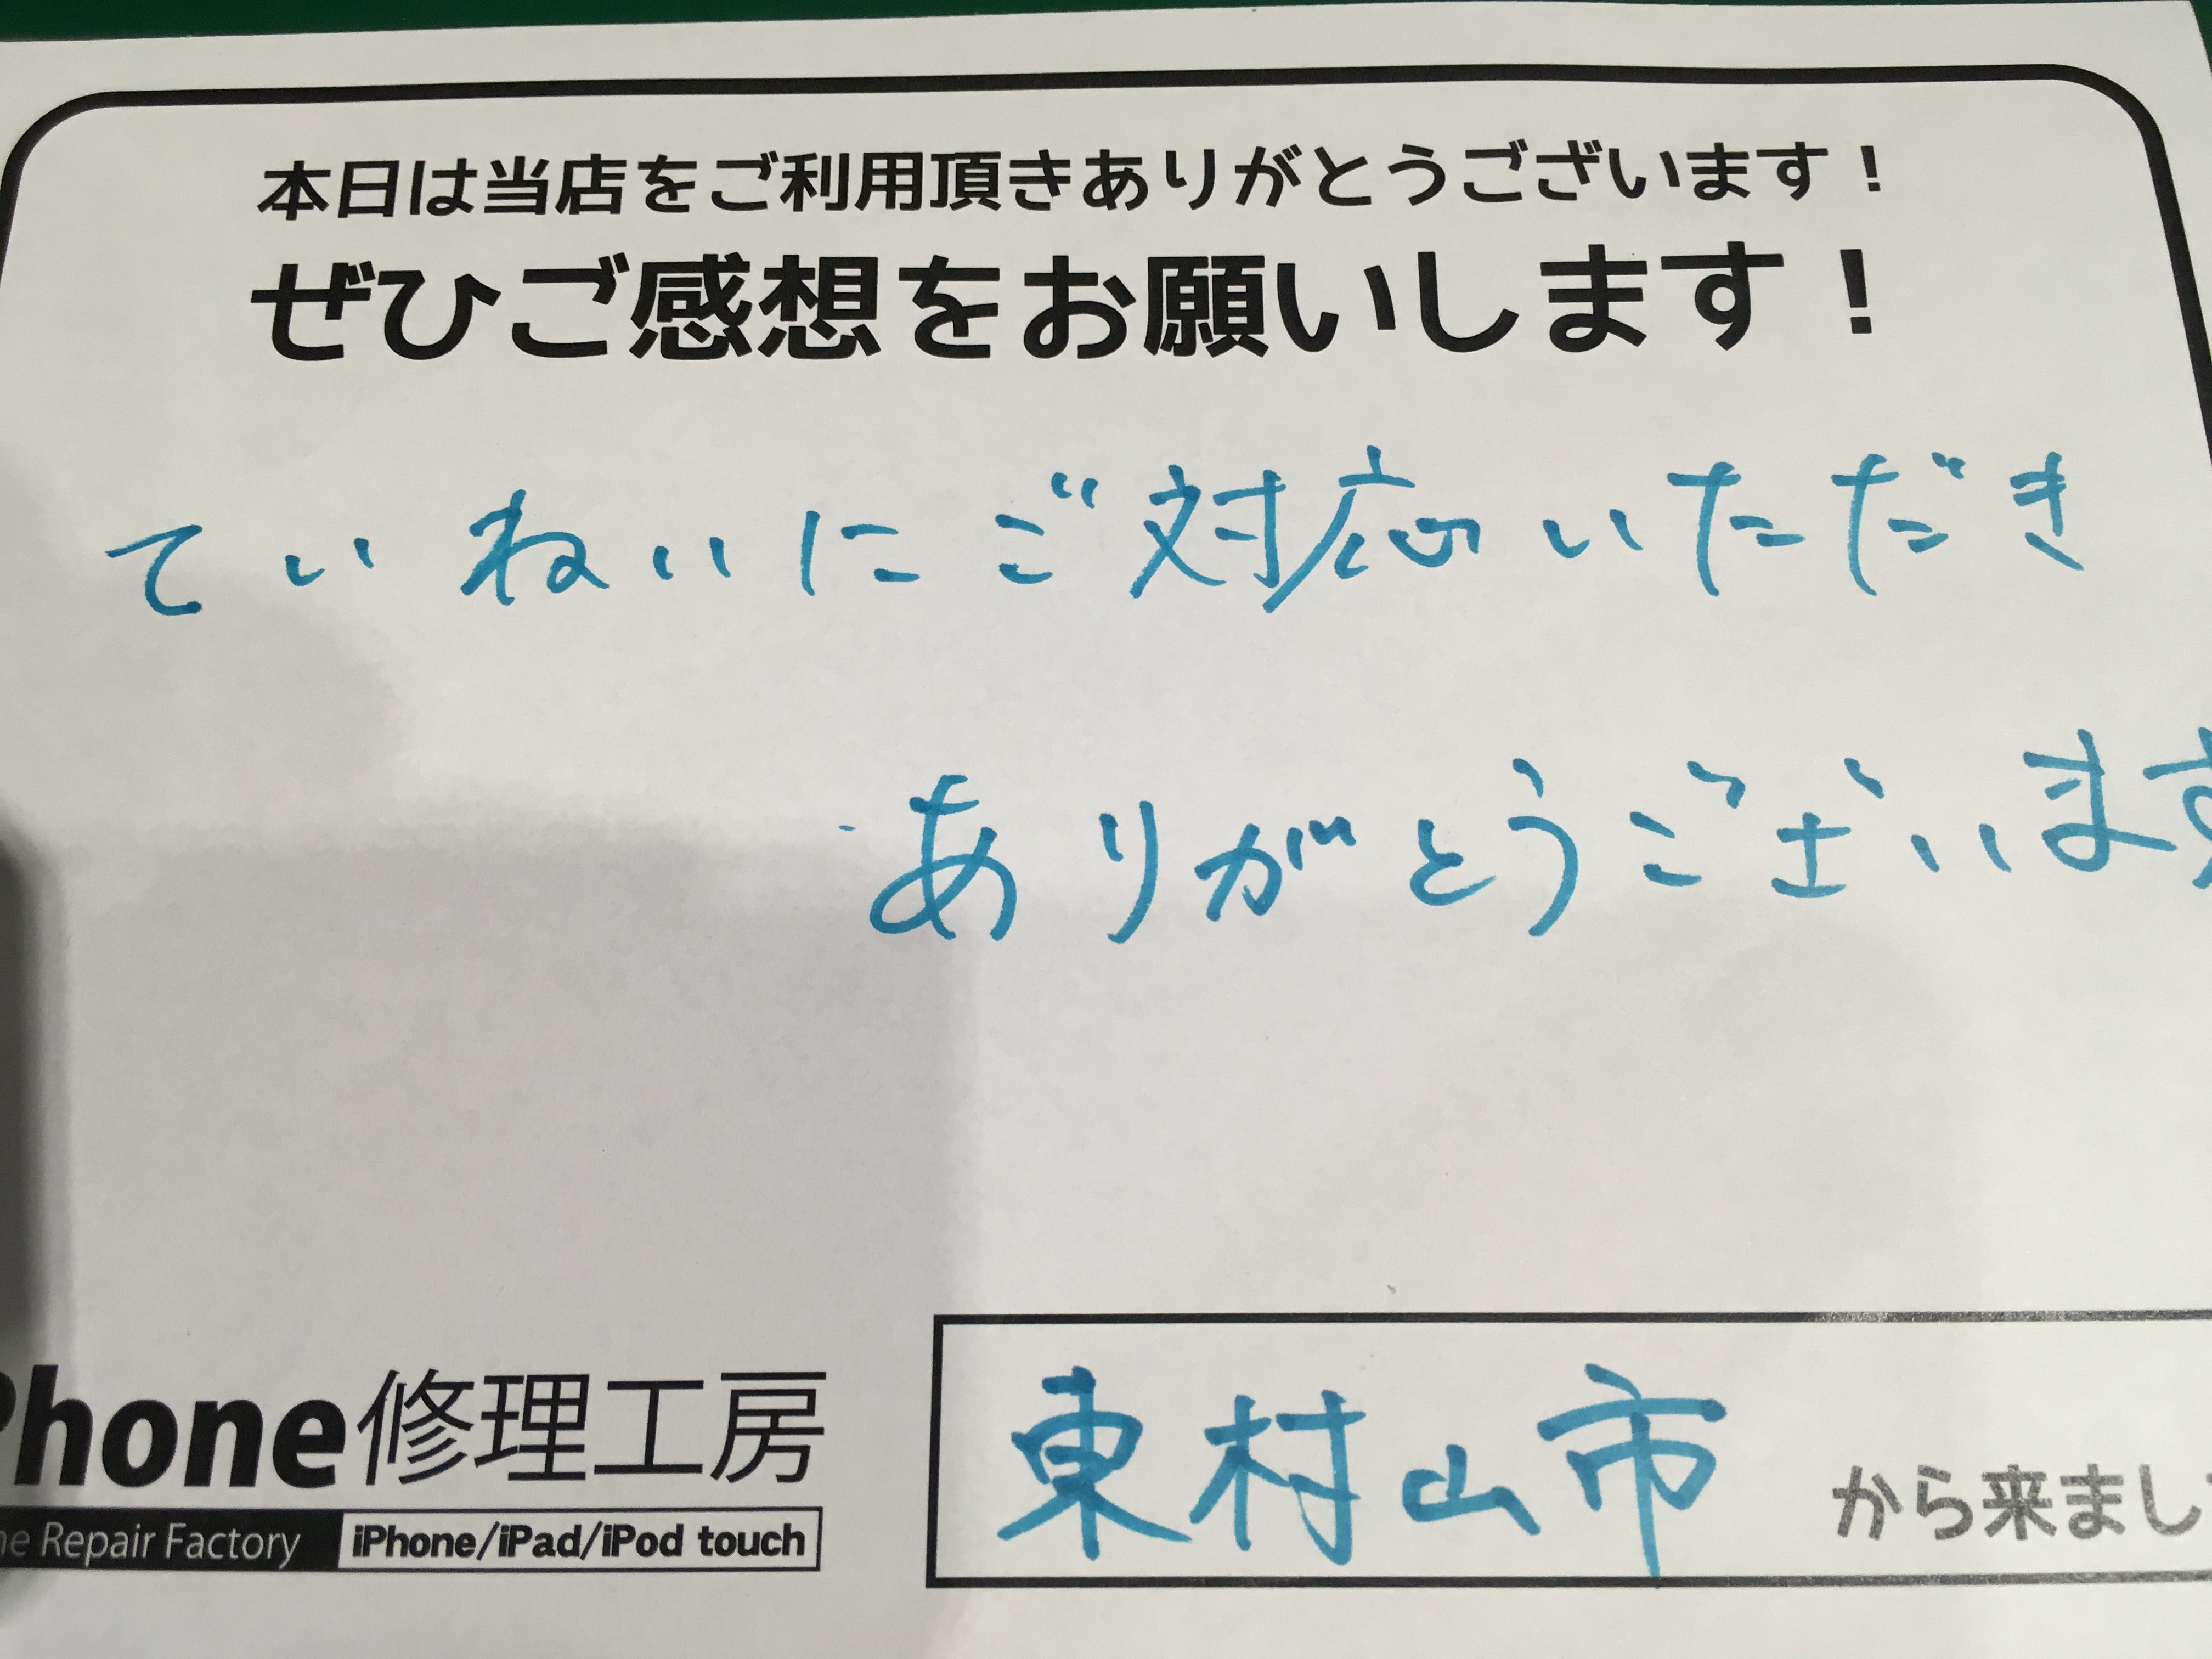 本日は当店をご利用頂きありがとうございます！
ぜひご感想をお願いします！
ていねいにご対応いただき
ありがとうございます
Phone修理工房
ne Repair Factory iPhone/iPad/iPod touch
東村山市 から来まし